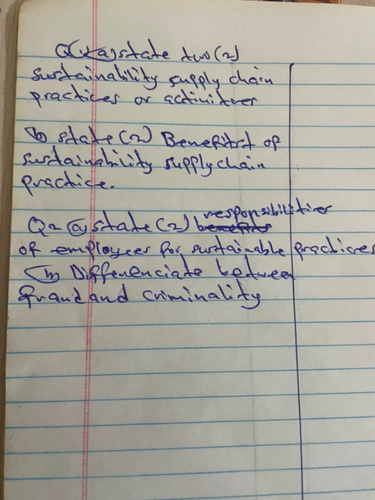 Q(1)(a) state two (2)
sustainability supply chain
practices or activities
(b) state (2) Benefitst of
sustainability supply chain
practice.
Q2(a) state (2) benefits responsibilities
of employees for sustainable practices
(b) Differenciate between
fraud and criminality